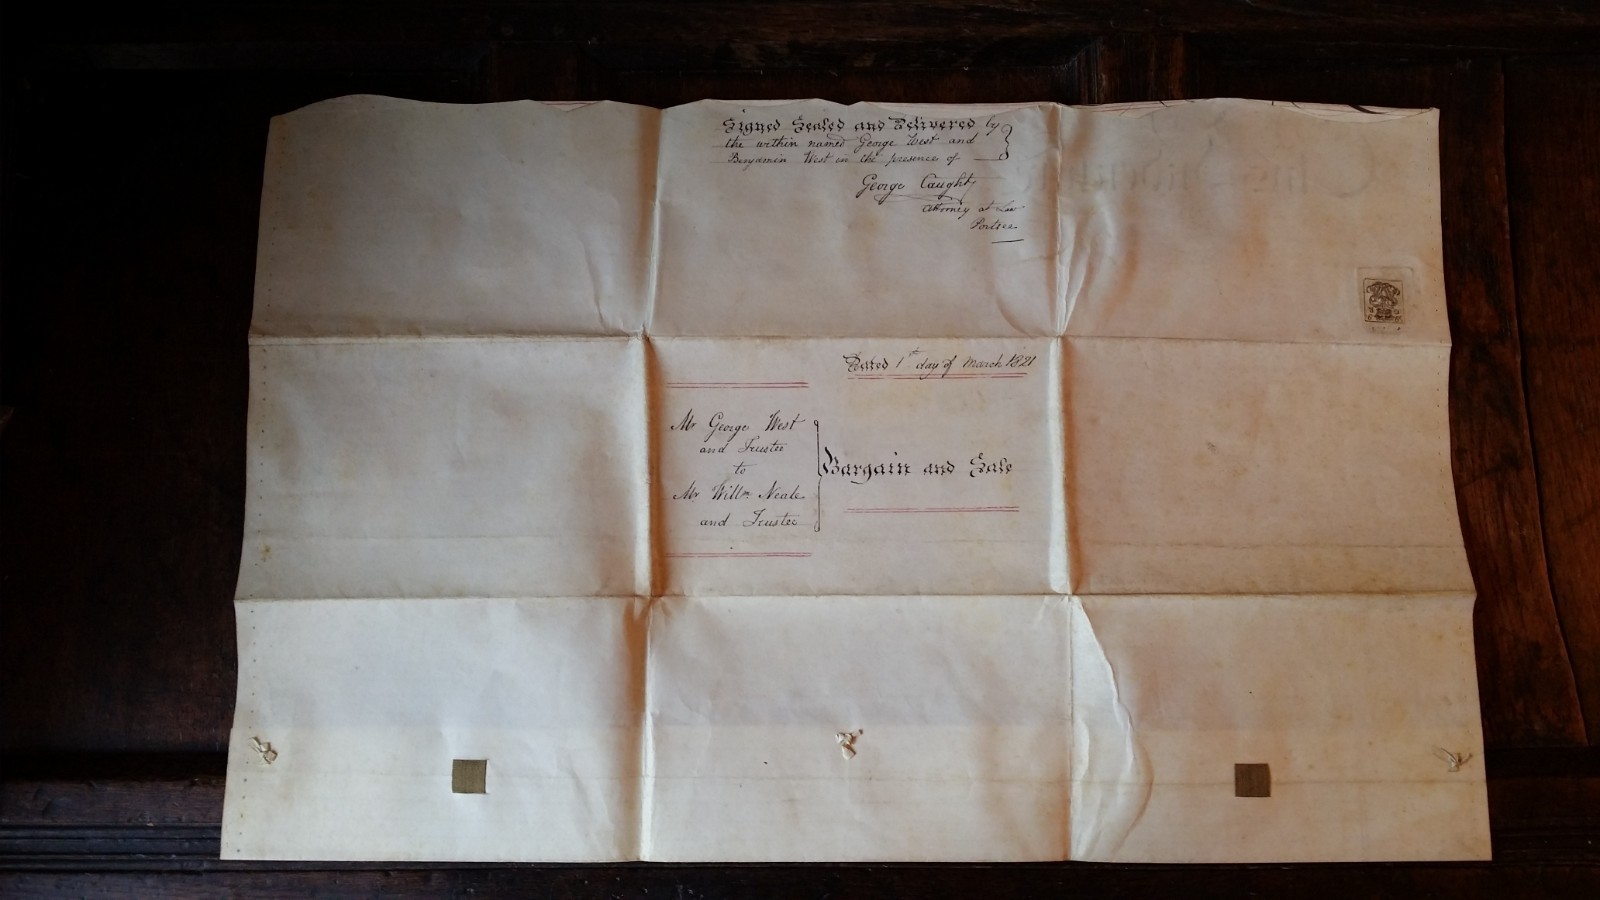 Signed Sealed and Delivered by
the within named George West and
Benjamin West in the presence of
George Caught
Attorney at Law
Portsea
Dated 1st day of March 1821
Mr George West
and Trustee
to
Mr Willm Neale
and Trustee
Bargain and Sale